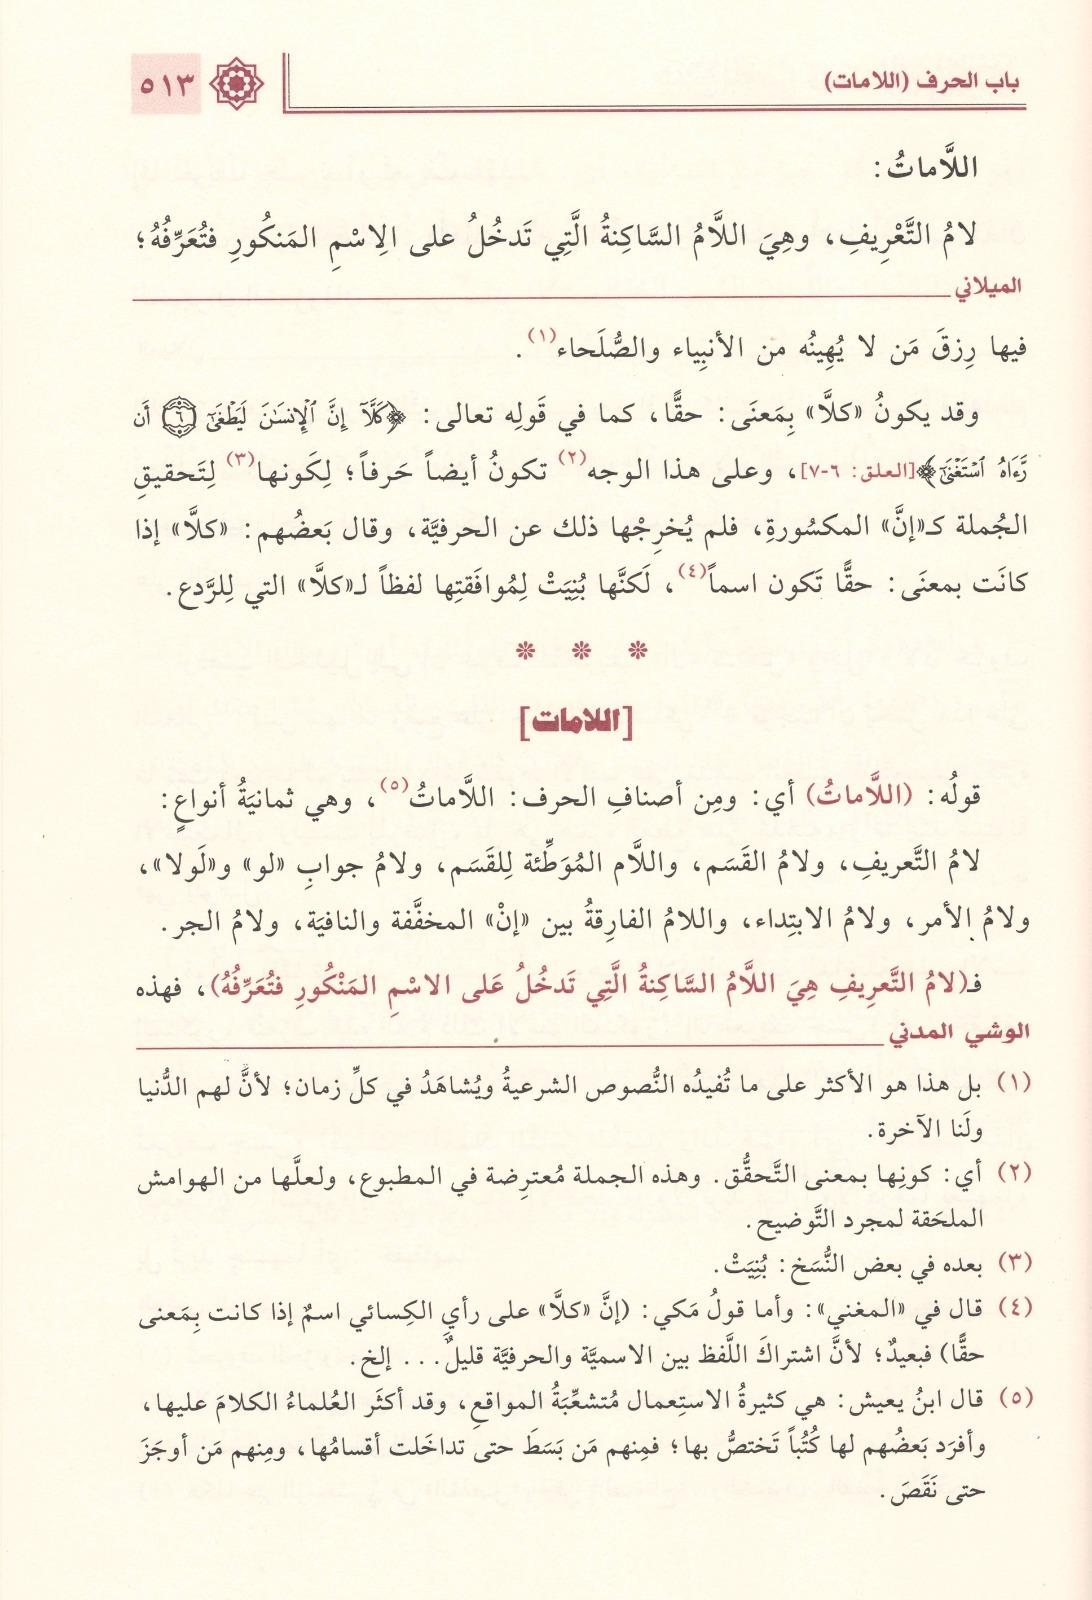 باب الحرف (اللامات)
٥١٣
اللَّاماتُ:
لامُ التَّعْرِيفِ، وهِيَ اللَّامُ السَّاكِنةُ الَّتِي تَدخُلُ على الِاسْمِ المَنكُورِ فتُعَرِّفُهُ؛
الميلاني
فيها رِزقَ مَن لا يُهِينُه من الأنبِياء والصُّلَحاء(١).
وقد يكونُ «كلَّا» بِمَعنَى: حقًّا، كما في قَولِه تعالى: ﴿كَلَّآ إِنَّ ٱلْإِنسَٰنَ لَيَطْغَىٰٓ ٦ أَن
رَّءَاهُ ٱسْتَغْنَىٰٓ﴾[العلق: ٦-٧]، وعلى هذا الوجه(٢) تكونُ أيضاً حَرفاً؛ لِكَونها(٣) لِتَحقيقِ
الجُملة كـ«إنَّ» المكسُورةِ، فلم يُخرِجْها ذلك عن الحرفيَّة، وقال بَعضُهم: «كلَّا» إذا
كانَت بمعنَى: حقًّا تَكون اسماً(٤)، لَكنَّها بُنِيَتْ لِمُوافَقتِها لفظاً لـ«كلَّا» التي لِلرَّدع.
* * *
[اللامات]
قولُه: (اللَّاماتُ) أي: ومِن أصنافِ الحرف: اللَّاماتُ(٥)، وهي ثمانيَةُ أنواعٍ:
لامُ التَّعريفِ، ولامُ القَسَم، واللَّام المُوَطِّئة لِلقَسَم، ولامُ جوابِ «لو» و«لَولا»،
ولامُ الأمر، ولامُ الابتِداء، واللامُ الفارِقةُ بين «إنْ» المخفَّفة والنافيَة، ولامُ الجر.
فـ(لامُ التَّعرِيفِ هِيَ اللَّامُ السَّاكِنةُ الَّتِي تَدخُلُ عَلى الاسْمِ المَنْكُورِ فتُعَرِّفُهُ)، فهذه
الوشي المدني
(١) بل هذا هو الأكثر على ما تُفيدُه النُّصوص الشرعيةُ ويُشاهَدُ في كلِّ زمان؛ لأنَّ لهم الدُّنيا
ولَنا الآخرة.
(٢) أي: كونِها بمعنى التَّحقُّق. وهذه الجملة مُعترِضة في المطبوع، ولعلَّها من الهوامش
الملحَقة لمجرد التَّوضيح.
(٣) بعده في بعض النُّسَخ: بُنِيَتْ.
(٤) قال في «المغني»: وأما قولُ مَكي: (إنَّ «كلَّا» على رأيِ الكِسائي اسمٌ إذا كانت بِمَعنى
حقًّا) فبعيدٌ؛ لأنَّ اشتراكَ اللَّفظ بين الاسميَّة والحرفيَّة قليلٌ... إلخ.
(٥) قال ابنُ يعيش: هي كثيرةُ الاستِعمال مُتشعِّبَةُ المواقعِ، وقد أكثَر العُلماءُ الكلامَ عليها،
وأفرَد بَعضُهم لها كُتُباً تَختصُّ بها؛ فمِنهم مَن بَسَطَ حتى تداخَلت أقسامُها، ومِنهم مَن أوجَزَ
حتى نَقَصَ.